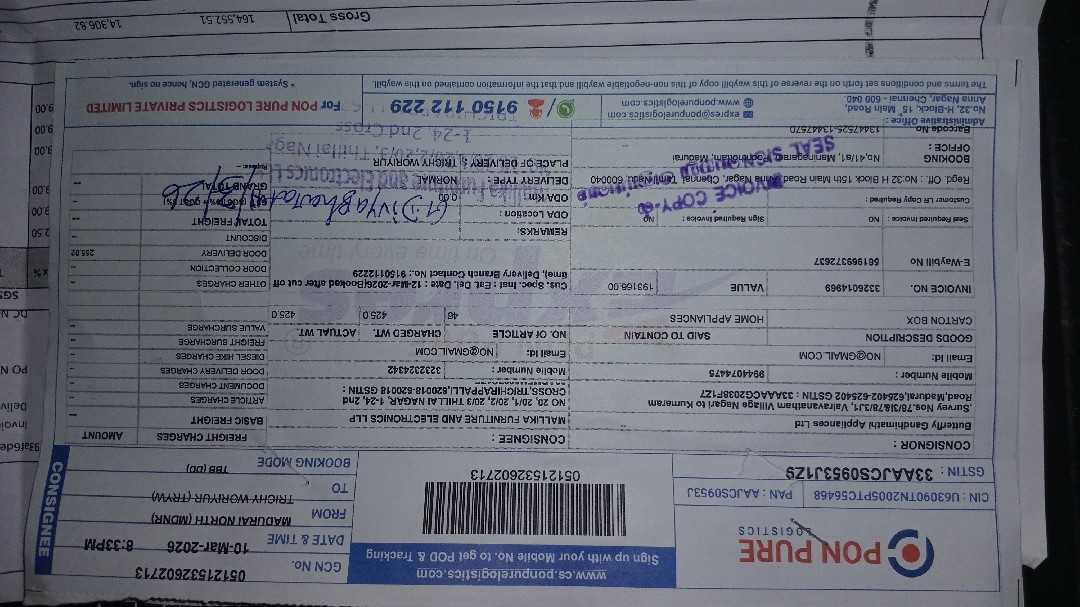 PON PURE
LOGISTICS
www.cs.ponpurelogistics.com
Sign up with your Mobile No. to get POD & Tracking
GCN No. 051215532602713
DATE & TIME 10-Mar-2026 8:33PM
FROM MADURAI NORTH (MDNR)
TO TRICHY WORIYUR (TRYW)
BOOKING MODE TBB (DD)
CONSIGNEE
CIN : U63090TN2005PTC56468 PAN : AAJCS0953J
GSTIN : 33AAJCS0953J1Z9
051215532602713
CONSIGNOR :
Butterfly Gandhimathi Appliances Ltd
Survey Nos.78/3I&78/3J1, Varaivanatham Village Nagari to Kumaram
Road,Madurai,625402-625402 GSTIN : 33AAACG2038F1Z7
Mobile Number : 9944074475
Email Id: NO@GMAIL.COM
CONSIGNEE :
MALLIKA FURNITURE AND ELECTRONICS LLP
NO. 20, 20/1, 20/2, 20/3 THILLAI NAGAR, 1-24, 2nd
CROSS, TRICHIRAPPALLI,620018-620018 GSTIN :
Mobile Number : 3232324342
Email Id: NO@GMAIL.COM
FREIGHT CHARGES AMOUNT
BASIC FREIGHT –
ARTICLE CHARGES –
DOCUMENT CHARGES –
DOOR DELIVERY CHARGES –
DIESEL HIKE CHARGES –
FREIGHT SURCHARGE –
VALUE SURCHARGE –
OTHER CHARGES –
DOOR COLLECTION –
DOOR DELIVERY 255.02
DISCOUNT –
TOTAL FREIGHT –
GRAND TOTAL –
GOODS DESCRIPTION SAID TO CONTAIN
CARTON BOX HOME APPLIANCES
NO. OF ARTICLE CHARGED WT. ACTUAL WT.
46 425.0 425.0
INVOICE NO. 3326014969 VALUE 193166.00
E-Waybill No 561969372637
Cus. Spec. Inst : Ext. Del. Date : 12-Mar-2026(Booked after cut off
time), Delivery Branch Contact No.: 9150112229
REMARKS:
Seal Required Invoice : NO Sign Required Invoice : NO
Customer LR Copy Required :
INVOICE COPY
SEAL SIGN
ODA Location :
ODA Km 0.00
DELIVERY TYPE : NORMAL
PLACE OF DELIVERY : TRICHY WORIYUR
G. Divyabharathi
Regd. Off. : No:32 H Block 15th Main Road Anna Nagar, Chennai, Tamil Nadu, 600040
BOOKING
OFFICE : No,41/a1, Maninagaram, Yogothokam, Madurai
Barcode No 13447525-13447570
Administrative Office :
No.32, H-Block, 15th Main Road,
Anna Nagar, Chennai - 600 040
expres@ponpurelogistics.com
www.ponpurelogistics.com
9150 112 229
For PON PURE LOGISTICS PRIVATE LIMITED
* System generated, GCN hence no sign.
The terms and conditions set forth on the reverse of this waybill copy of this non-negotiable waybill and that the information contained on this waybill.
Gross Total 164,552.51 14,306.82